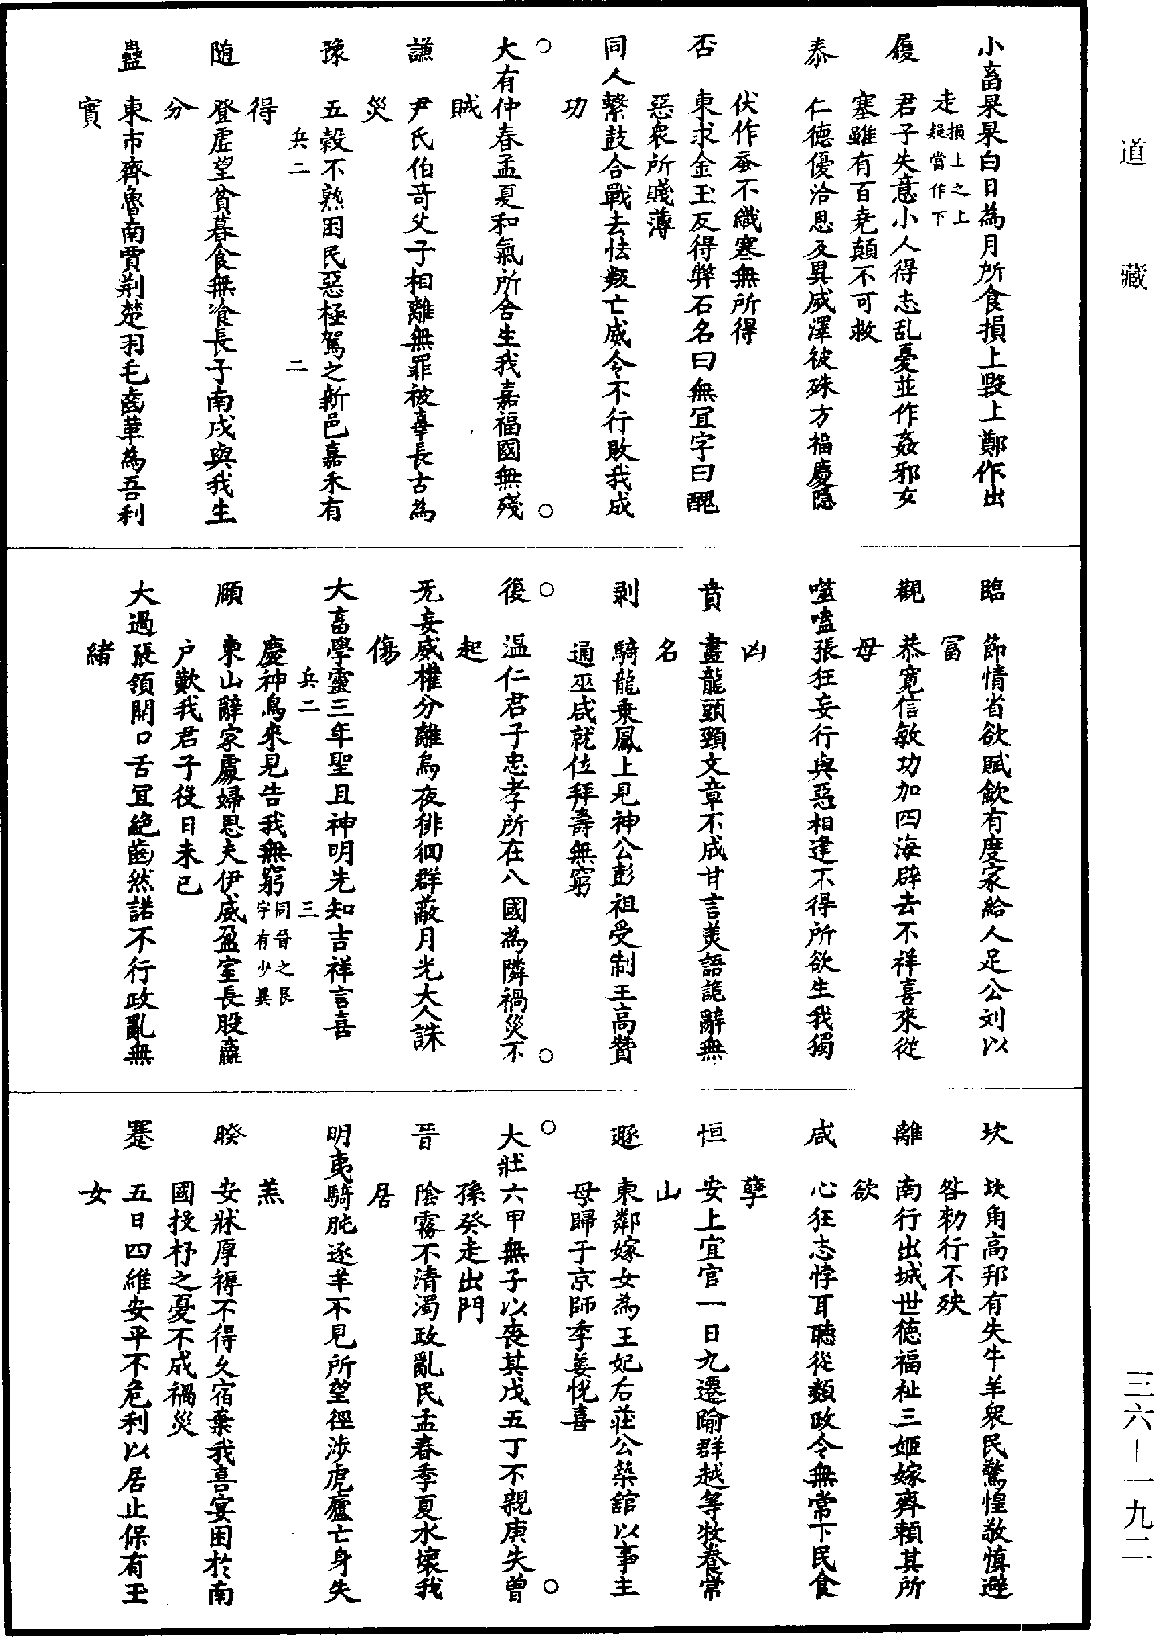 小畜杲杲白日為月所食損上毀上鄭作出
走損上之上疑當作下
履　君子失意小人得志乱憂並作姦邪女
塞雖有百堯顛不可救
泰　仁德優洽恩及異威澤彼殊方福慶隱
伏作蚕不織寒無所得
否　東求金玉反得弊石名曰無冝字曰醜
惡衆所賤薄
同人繫鼓合戰去怯叛亡威令不行敗我成
功
○　　○
大有仲春孟夏和氣所舍生我嘉福國無殘
賊
謙　尹氏伯奇父子相離無罪被辜長古為
災
豫　五穀不熟困民惡極駕之新邑嘉禾有
得　兵二　二
隨　登虛望貧暮食無飡長子南戍與我生
分
蠱　東市齊魯南賈荆楚羽毛齒革為吾利
實
臨　節情省欲賦歛有度家給人足公刘以
富
觀　恭寛信敏功加四海辟去不祥喜來從
母
噬嗑張狂妄行與惡相逢不得所欲生我獨
凶
賁　畫龍頭頸文章不成甘言美語詭辭無
名
剥　騎龍乘鳳上見神公彭祖受制王高贊
通巫咸就位拜壽無窮
○　　○
復　温仁君子忠孝所在八國為隣禍災不
起
无妄威權分離烏夜徘徊群蔽月光大人誅
傷
大畜學靈三年聖且神明先知吉祥言喜
兵二　三
慶神鳥來見告我無窮同晉之艮字有少異
頤　東山辭家處婦思夫伊威盈室長股蠃
户歎我君子役日未已
大過張領開口舌冝絶齒然諾不行政亂無
緒
坎　坎角高邦有失牛羊衆民驚惶敬慎避
咎勑行不殃
離　南行出城世德福祉三姬嫁齊賴其所
欲
咸　心狂志悖耳聽從類政令無常下民食
孽
恒　安上宜官一日九遷踰群越等牧養常
山
遯　東鄰嫁女為王妃右莊公築舘以事主
母歸于京師季姜恱喜
○　　○
大壯六甲無子以喪其戊五丁不親庚失曾
孫癸走出門
晉　陰霧不清濁政亂民孟春季夏水壞我
居
明夷騎肫逐羊不見所望徑涉虎廬亡身失
羔
睽　安牀厚褥不得久宿棄我喜宴困於南
國投杼之憂不成禍災
蹇　五日四維安平不危利以居止保有玉
女
道藏
三六－一九二